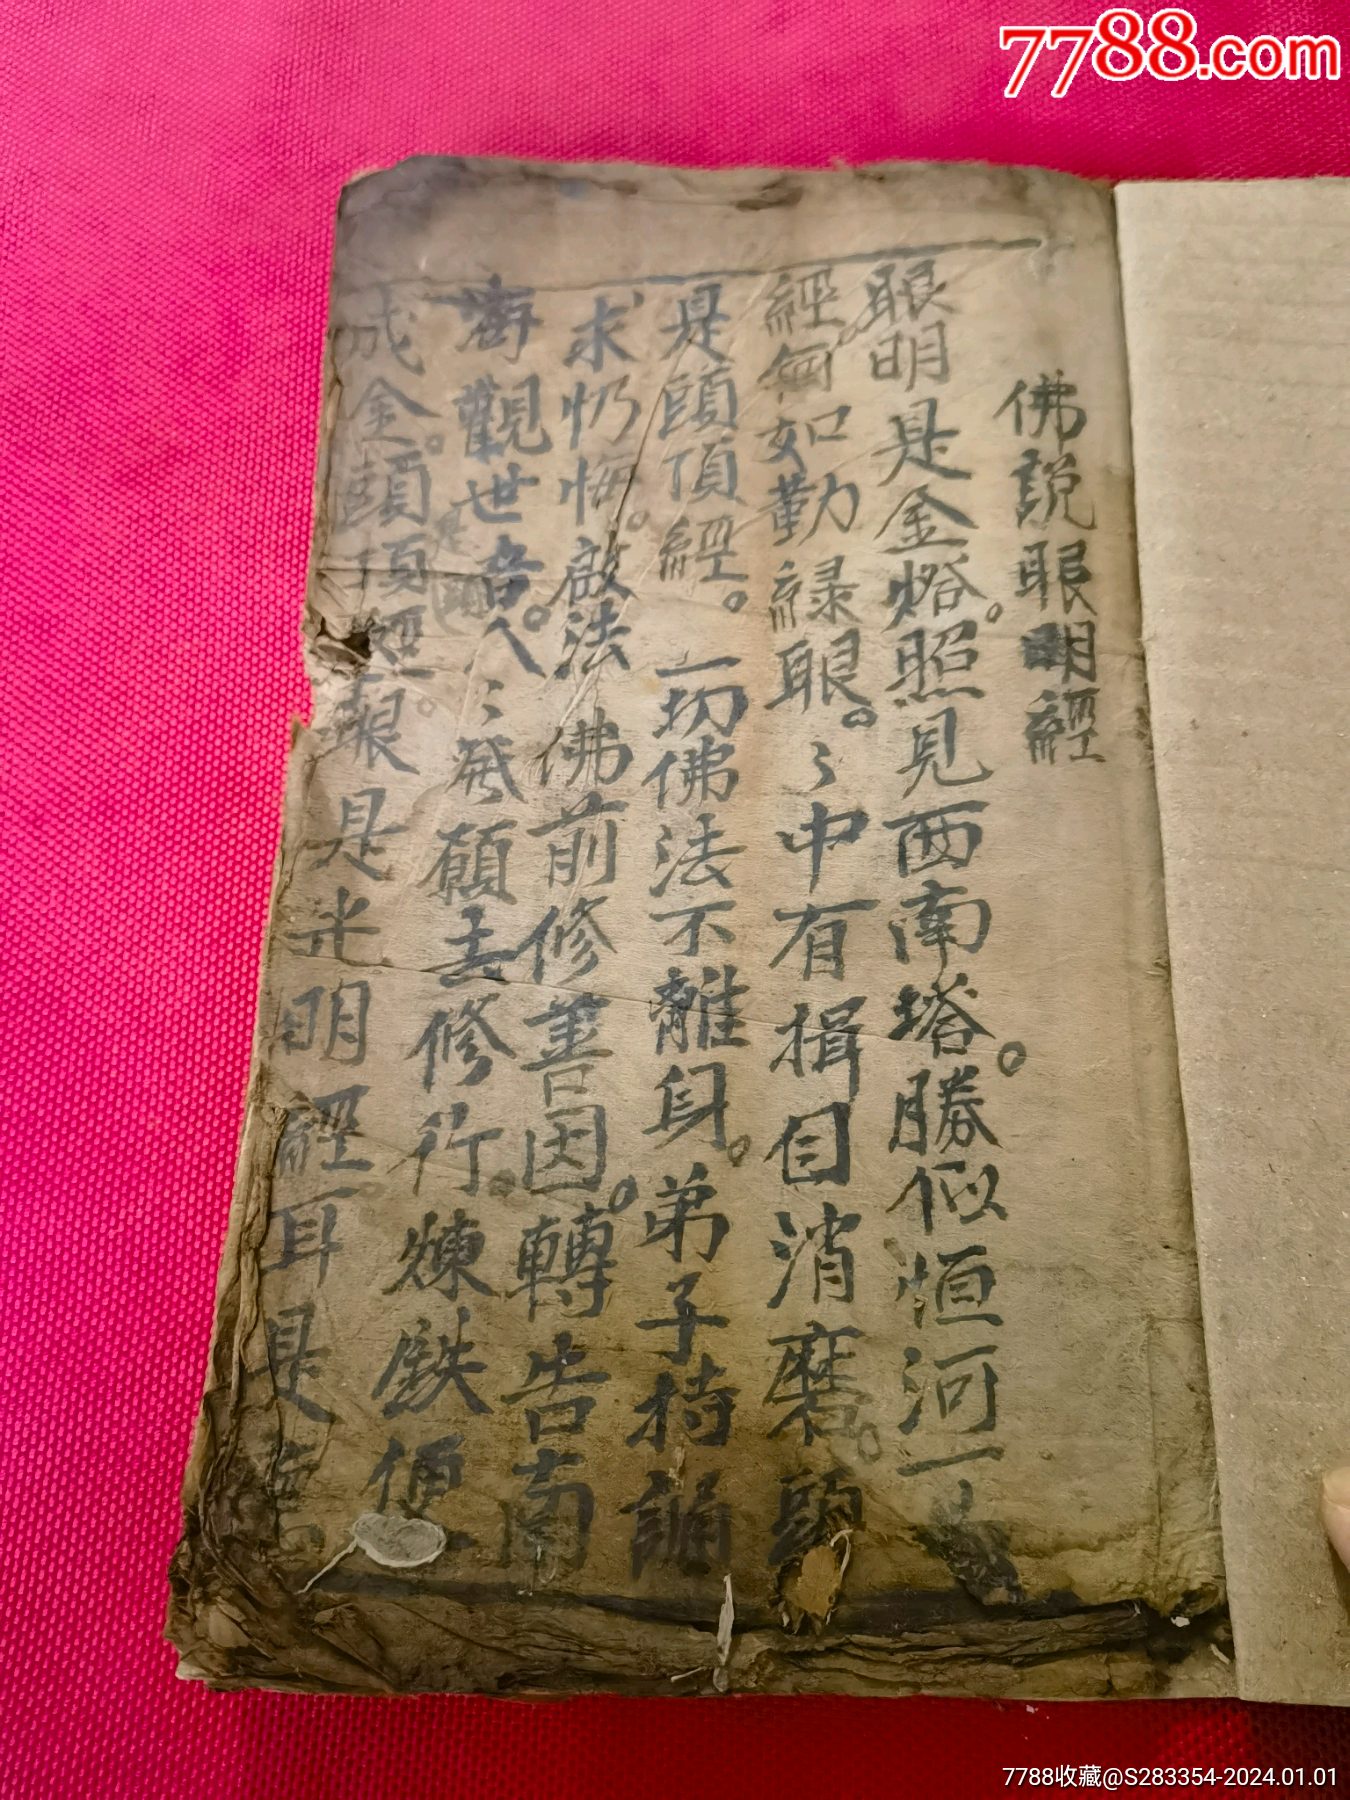 7788.com
佛説眼明經
眼明是金熔。照見西南塔。勝似恒河一
經。何如勤緑眼。〻中有揖目消磨。頭
是頭頂經。一切佛法不離身。弟子持誦
求忏悔。啟法佛前修善因。轉告南
海觀世音。人〻發願去修行。煉鉄便
成金。頭頂經眼是光明經。耳是
7788收藏@S283354-2024.01.01